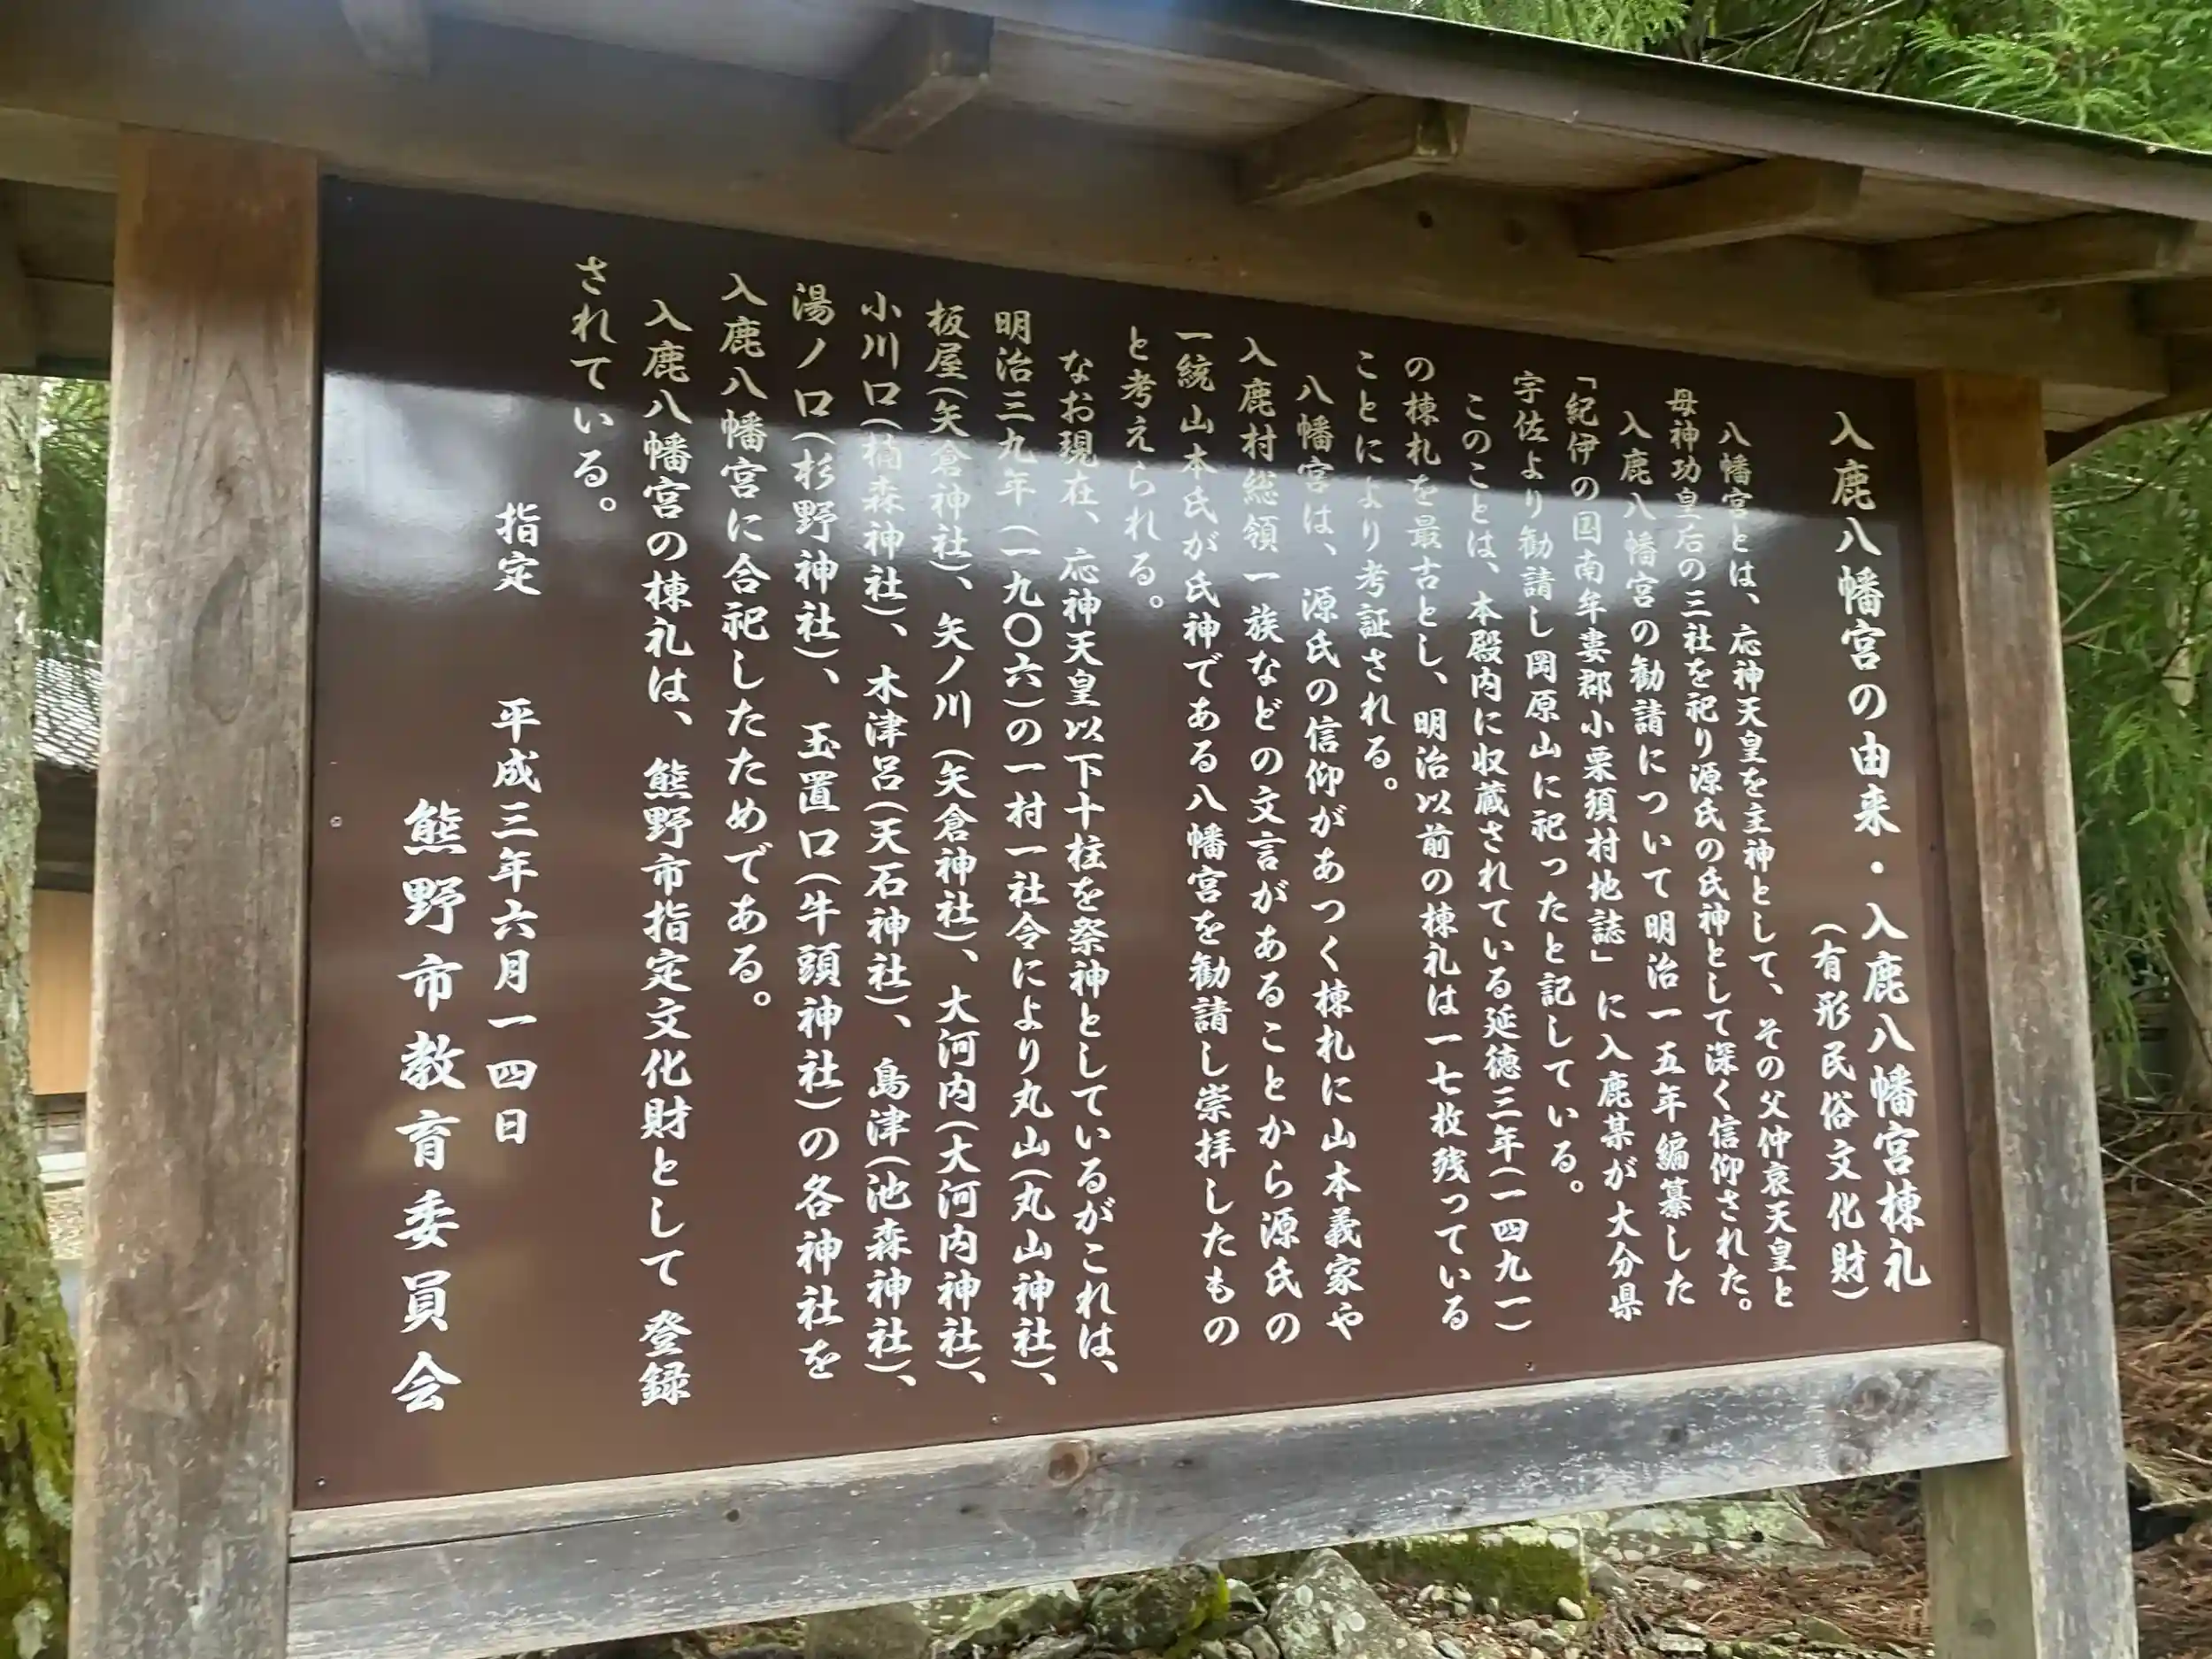 入鹿八幡宮の由来・入鹿八幡宮棟札
（有形民俗文化財）
八幡宮とは、応神天皇を主神として、その父仲哀天皇と
母神功皇后の三社を祀り源氏の氏神として深く信仰された。
入鹿八幡宮の勧請について明治一五年編纂した
「紀伊の国南牟婁郡小栗須村地誌」に入鹿某が大分県
宇佐より勧請し岡原山に祀ったと記している。
このことは、本殿内に収蔵されている延徳三年（一四九一）
の棟札を最古とし、明治以前の棟札は一七枚残っている
ことにより考証される。
八幡宮は、源氏の信仰があつく棟札に山本義家や
入鹿村総領一族などの文言があることから源氏の
一統山本氏が氏神である八幡宮を勧請し崇拝したもの
と考えられる。
なお現在、応神天皇以下十柱を祭神としているがこれは、
明治三九年（一九〇六）の一村一社令により丸山（丸山神社）、
板屋（矢倉神社）、矢ノ川（矢倉神社）、大河内（大河内神社）、
小川口（楠森神社）、木津呂（天石神社）、島津（池森神社）、
湯ノ口（杉野神社）、玉置口（牛頭神社）の各神社を
入鹿八幡宮に合祀したためである。
入鹿八幡宮の棟札は、熊野市指定文化財として登録
されている。
指定　平成三年六月一四日
熊野市教育委員会